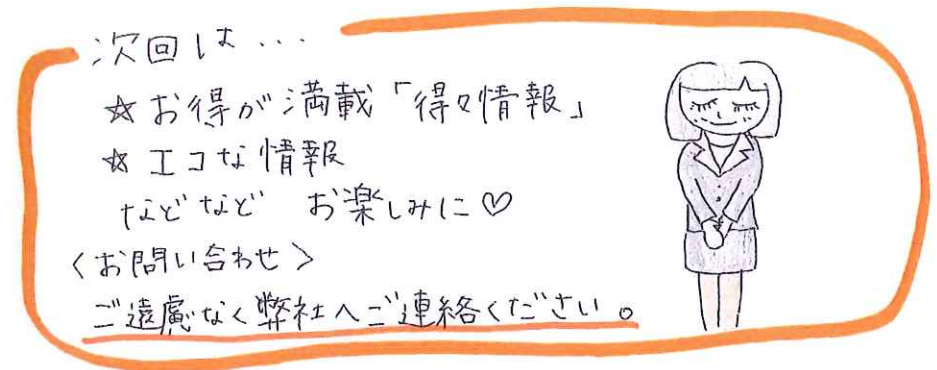 次回は...
☆お得が満載「得々情報」
☆エコな情報
などなど お楽しみに♡
〈お問い合わせ〉
ご遠慮なく弊社へご連絡ください。